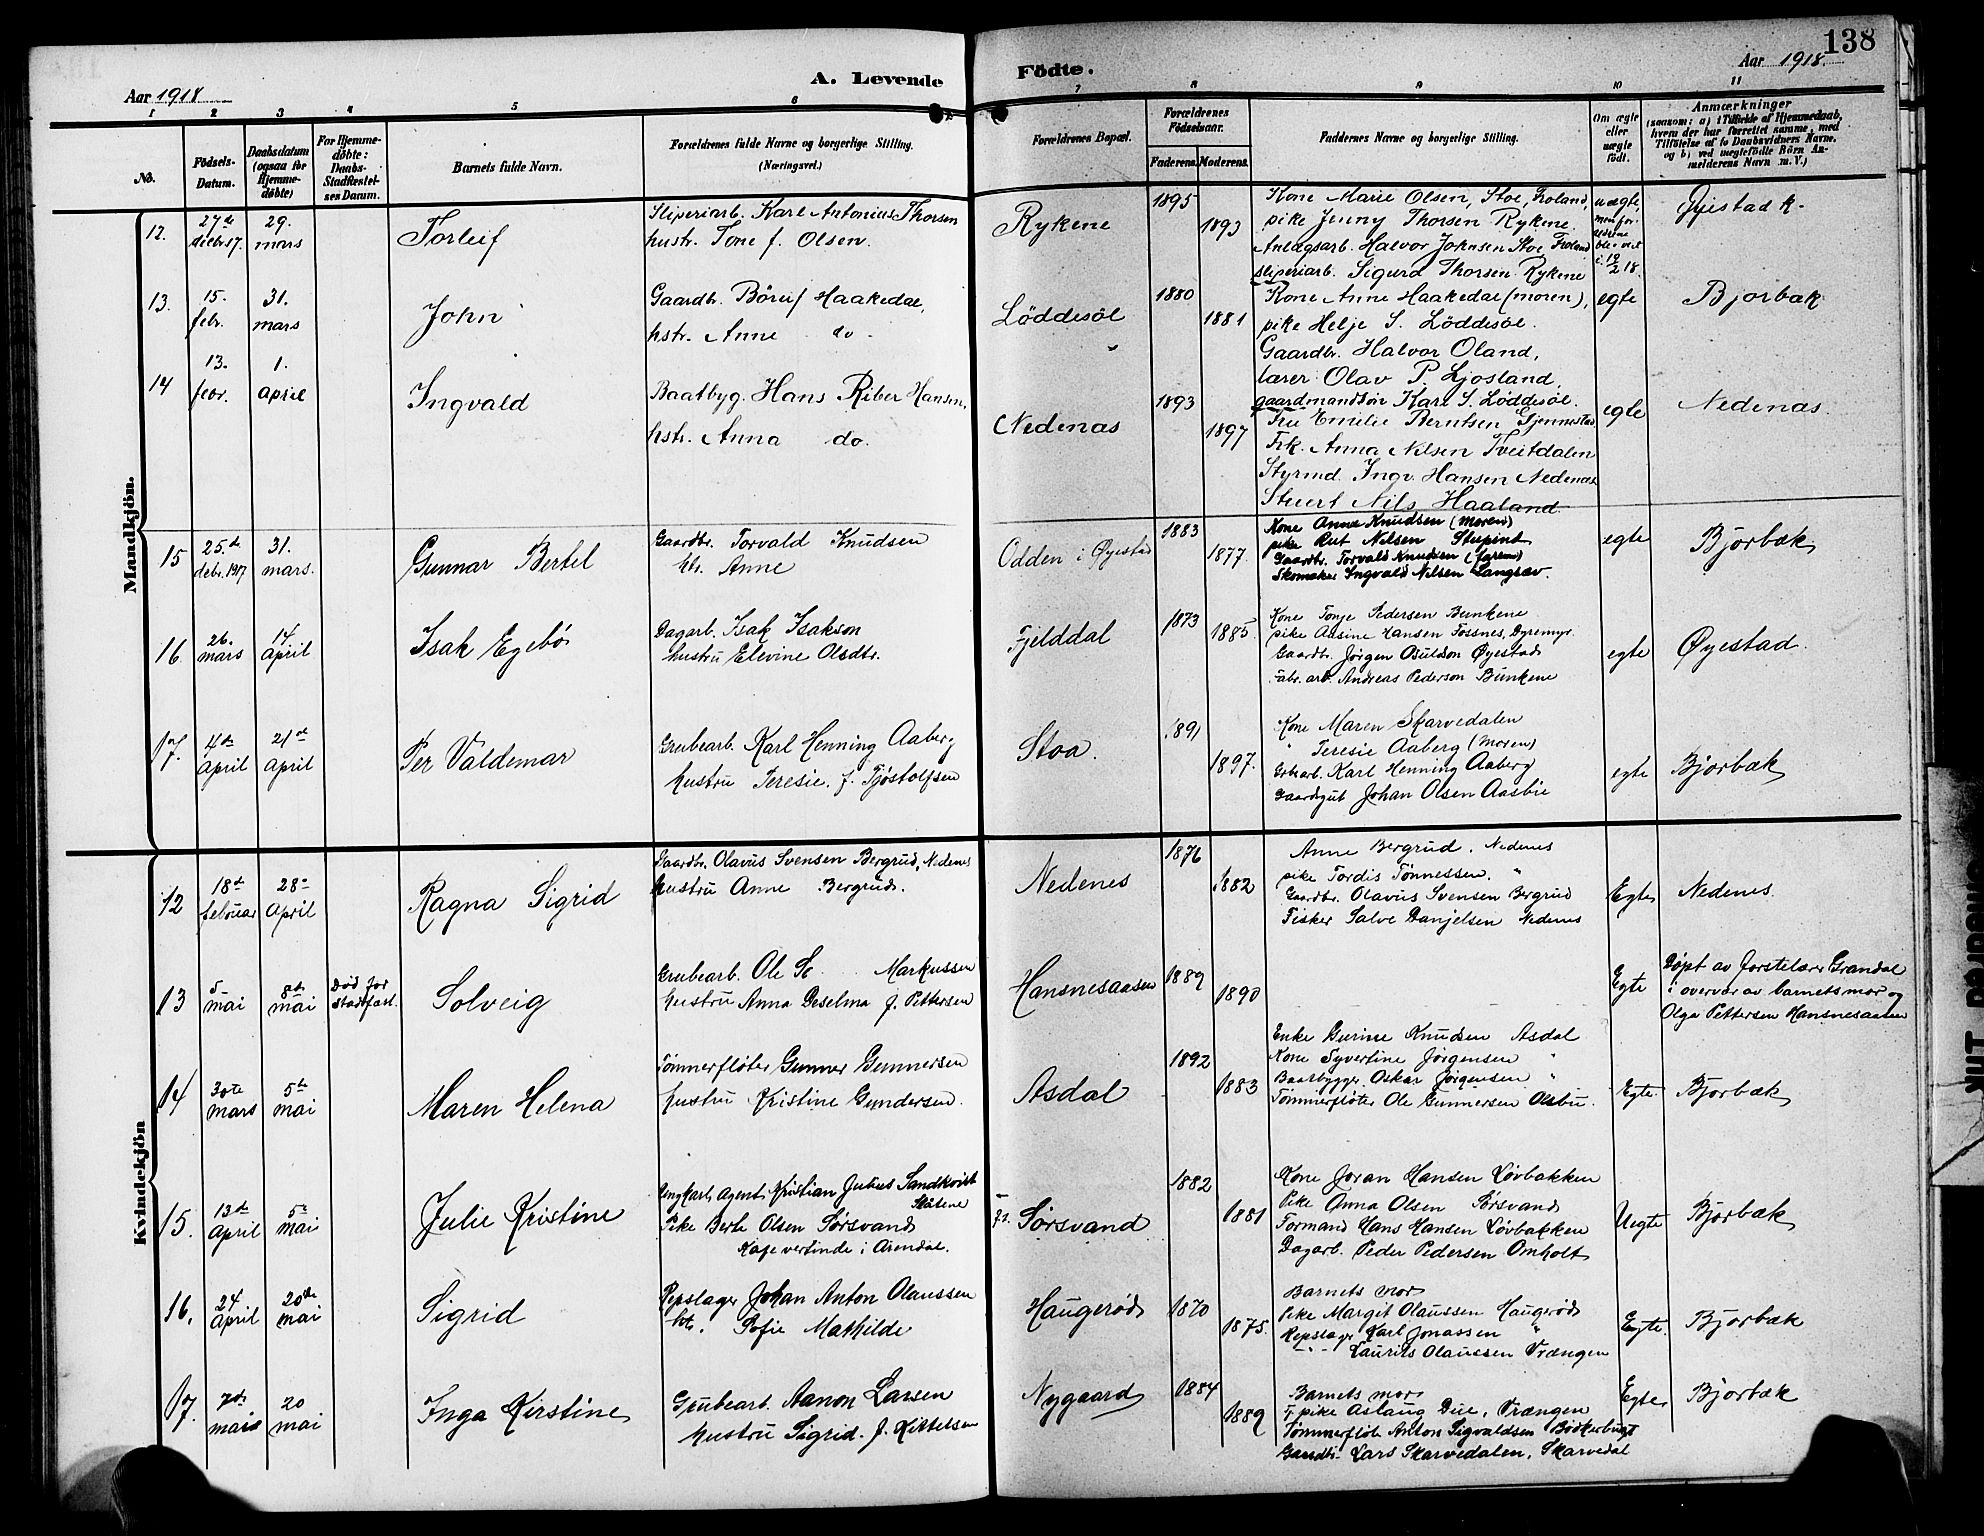 138
Aar 1918.
A. Levende
Födte.
Aar 1918.
1 2 3 4 5 6 7 8 9 10 11
No.
Födsels-Datum.
Daabsdatum (ogsaa for Hjemme-döbte)
For Hjemme-döbte: Daabs-Stadfæstel-ses Datum.
Barnets fulde Navn.
Forældrenes fulde Navne og borgerlige Stilling.
(Næringsvei.)
Forældrenes Bopæl.
Forældrenes Födselsaar.
Faderens. Moderens.
Faddernes Navne og borgerlige Stilling.
Om ægte eller uægte födt.
Anmærkninger
(saasom: a) i Tilfælde af Hjemmedaab, hvem der har forrettet samme, med Tilföielse af to Daabsvidners Navne, og b) ved uægtefödte Börn An-melderens Navn m. V.)
Mandkjön.
12. 27de decbr. 17. 29. mars Torleif
Sliperiarb. Karl Antonius Thorsen
hustr. Tone f. Olsen.
Rykene 1895 1893
Kone Marie Olsen, Stoe, Froland,
pike Jenny Thorsen Rykene.
Anlægsarb. Halvor Johnsen Stoe Froland
sliperiarb. Sigurd Thorsen Rykene
uægte men forældrene blev viet i 18.
Øyestad k.
13. 15. febr. 31. mars John
Gaardbr. Böreif Haakedal,
hstr. Anne do.
Löddesöl 1880 1881
Kone Anne Haakedal (moren),
pike Helje S. Löddesöl.
Gaardbr. Halvor Oland,
lærer Olav P. Ljosland,
gaardmandsöv Karl S. Löddesöl.
egte
Bjorbæk
14 13. febr. 1. april Ingvald
Baatbyg. Hans Riber Hansen,
hstr. Anna do.
Nedenæs 1893 1897
Fru Emilie Berntsen Gjennestad
Frk. Anna Nilsen Tveitdalen
Styrmd. Ingv. Hansen Nedenæs
Stuert Nils Haaland.
egte
Nedenæs.
15 25. de debr. 1917 31. mars. Gunnar Bertel
Gaardbr. Torvald Knudsen
htr. Anne
Odden i Øyestad 1883 1877.
Kone Anna Knudsen (Moren)
pike Rut Nilsen Stupind
Gaardbr. Torvald Knudsen (faren)
Skomaker Ingvald Nilsen Langsæv.
egte
Bjorbæk
16. 26. mars 14 April Isak Egebö
Dagarb. Isak Isakson
hustru Elevine Olsdtr.
Fjelddal 1873 1885.
Kone Tonje Pedersen Bunkene
pike Aasine Hansen Fossnes, Dyremyr.
Gaardbr. Jörgen Osuldson Øyestad
Fabr. arb. Andreas Pederson Bunkene
egte
Øyestad.
17. 4de April 21de April Per Valdemar
Grubearb. Karl Henning Aaberg
hustru Teresie. f. Tjöstolfsen
Stoa. 1891 1897.
Kone Maren Skarvedalen
" Teresie Aaberg (Moren)
Grbarb. Karl Henning Aaberg
Gaardsgut Johan Olsen Aasbie
egte
Bjorbæk
Kvindekjön
12 18de februar 28de April Ragna Sigrid
Gaardbr. Olavus Svensen Bergrud, Nedenes
hustru Anne Bergrud.
Nedenes 1876 1882
Anne Bergrud. Nedenes
pike Tordis Tönnessen. "
Gaardbr. Olavus Svensen Bergrud
Fisker Salve Danjelsen Nedenes
Egte
Nedenes.
13 5. mai 8de mai Död for Stadfæst. Solveig
Grubearb. Ole Markussen
hustru Anna Deselma f. Pettersen
Hansnesaasen 1889 1890
Egte
Döpt av forstelærer Grandal
i overvær av barnets mor og
Olga Pettersen Hansnesaasen
14 30te mars 5te mai Maren Helena
Tömmerflöter Gunner Gunnersen
hustru Kristine Gundersen.
Asdal 1892 1883
Enke Gurine Knudsen Asdal
Kone Syvertine Jörgensen "
Baatbygger Oskar Jörgensen "
Tömmerflöter Ole Gunnersen Olsbu.
Egte
Bjorbæk
15. 13de April 5te mai Julie Kristine
Agent, Kristian Julius Sandkvist
Pike Berte Olsen Sörsvand
Kafevertinde i Arendal.
Sörsvand 1882 1881
Kone Joran Hansen Lövbakken
Pike Anna Olsen Sörsvand
Formand Hans Hansen Lövbakken
Dagarb. Peder Pedersen Omholt
Uegte
Bjorbæk
16. 24 April 20de mai Sigrid
Repslager Johan Anton Olaussen
htr. Sofie Mathilde
Haugeröd 1870 1875.
Barnets mor
Pike Margit Olaussen Haugeröd
Repslager Karl Jonassen "
-"- Laurits Olaussen Vrængen
Egte.
Bjorbæk
17. 7de mars 20 mai Inga Kirstine
Grubearb. Aanon Larsen
hustru Sigrid. f. Kittelsen
Nygaard 1884 1889
Barnets mor
pike Aslaug Due, Vrængen
Tömmerflöt. Anton Sigvaldsen Bödkerbugt
Gaardbr. Lars Skarvedalen, Skarvedal
Egte
Bjorbæk